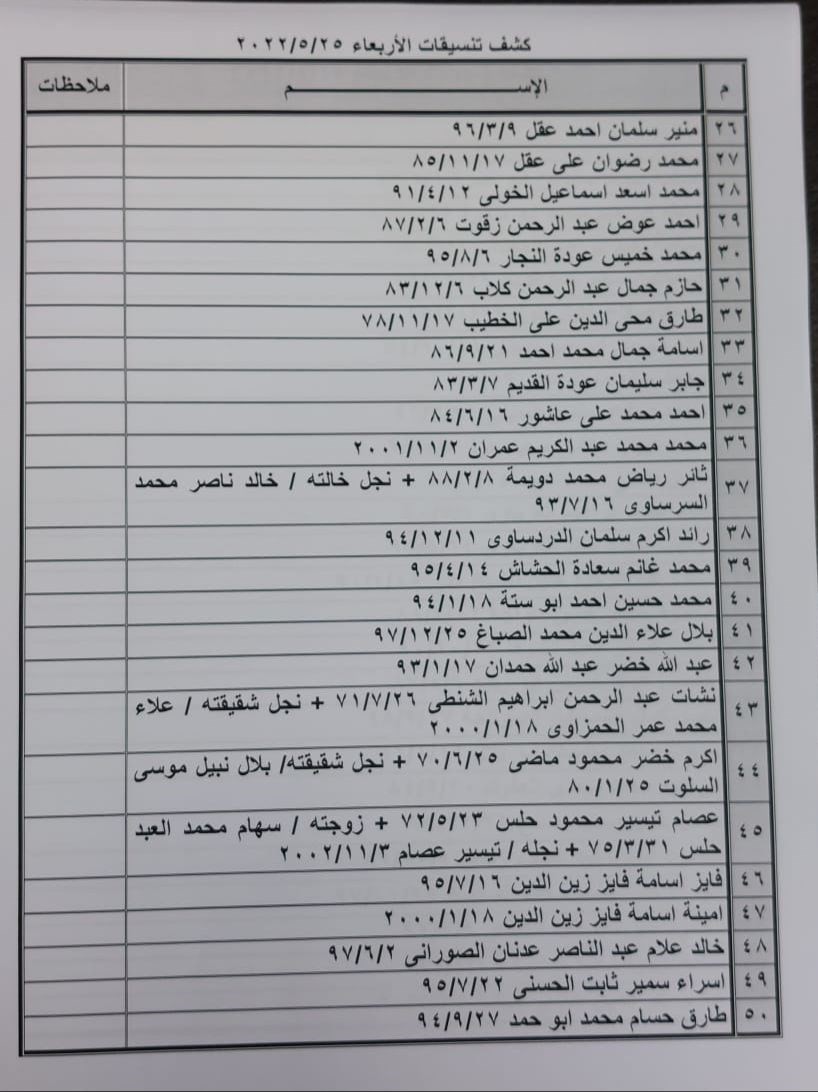 كشف تنسيقات الأربعاء ٢٠٢٢/٥/٢٥
م الإســـــــم ملاحظات
٢٦ منير سلمان احمد عقل ٩٦/٣/٩
٢٧ محمد رضوان على عقل ٨٥/١١/١٧
٢٨ محمد اسعد اسماعيل الخولى ٩١/٤/١٢
٢٩ احمد عوض عبد الرحمن زقوت ٨٧/٢/٦
٣٠ محمد خميس عودة النجار ٩٥/٨/٦
٣١ حازم جمال عبد الرحمن كلاب ٨٣/١٢/٦
٣٢ طارق محى الدين على الخطيب ٧٨/١١/١٧
٣٣ اسامة جمال محمد احمد ٨٦/٩/٢١
٣٤ جابر سليمان عودة القديم ٨٣/٣/٧
٣٥ احمد محمد على عاشور ٨٤/٦/١٦
٣٦ محمد محمد عبد الكريم عمران ٢٠٠١/١١/٢
٣٧ ثائر رياض محمد دويمة ٨٨/٢/٨ + نجل خالته / خالد ناصر محمد
السرساوى ٩٣/٧/١٦
٣٨ رائد اكرم سلمان الدردساوى ٩٤/١٢/١١
٣٩ محمد غانم سعادة الحشاش ٩٥/٤/١٤
٤٠ محمد حسين احمد ابو ستة ٩٤/١/١٨
٤١ بلال علاء الدين محمد الصباغ ٩٧/١٢/٢٥
٤٢ عبد الله خضر عبد الله حمدان ٩٣/١/١٧
٤٣ نشات عبد الرحمن ابراهيم الشنطى ٧١/٧/٢٦ + نجل شقيقته / علاء
محمد عمر الحمزاوى ٢٠٠٠/١/١٨
٤٤ اكرم خضر محمود ماضى ٧٠/٦/٢٥ + نجل شقيقته/ بلال نبيل موسى
السلوت ٨٠/١/٢٥
٤٥ عصام تيسير محمود حلس ٧٢/٥/٢٣ + زوجته / سهام محمد العبد
حلس ٧٥/٣/٣١ + نجله / تيسير عصام ٢٠٠٢/١١/٣
٤٦ فايز اسامة فايز زين الدين ٩٥/٧/١٦
٤٧ امينة اسامة فايز زين الدين ٢٠٠٠/١/١٨
٤٨ خالد علام عبد الناصر عدنان الصورانى ٩٧/٦/٢
٤٩ اسراء سمير ثابت الحسنى ٩٥/٧/٢٢
٥٠ طارق حسام محمد ابو حمد ٩٤/٩/٢٧